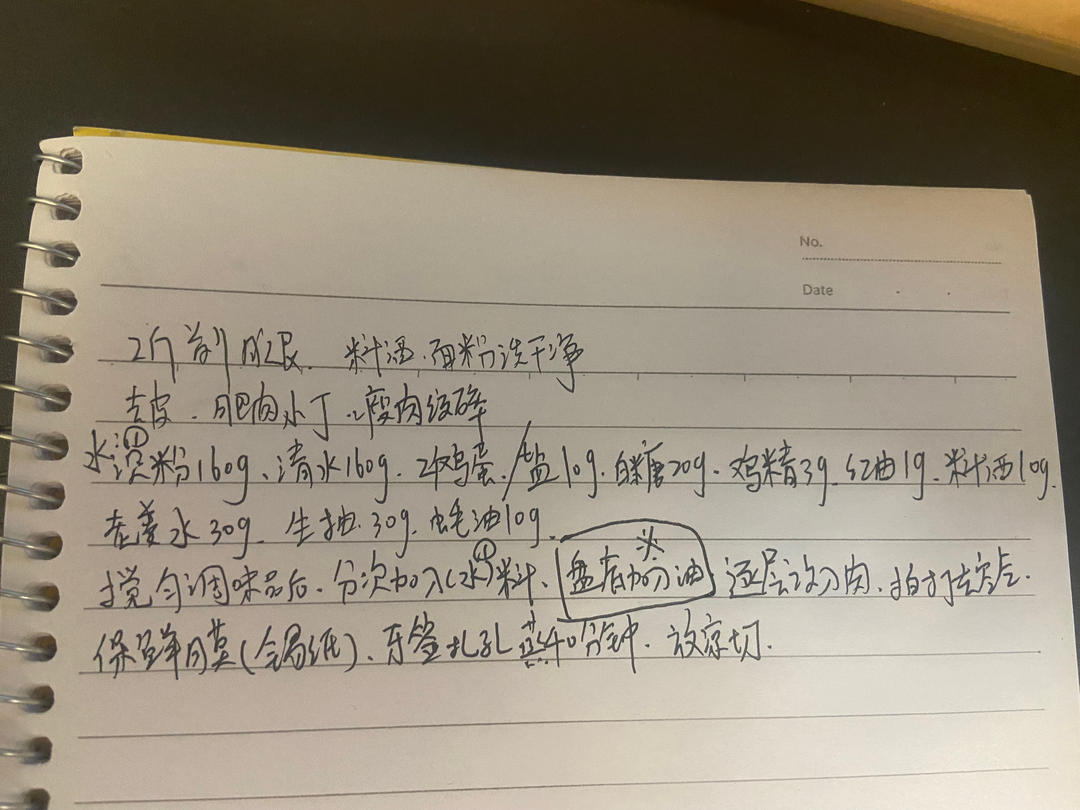 No.
Date
2个前腿、料酒、面粉洗干净
去皮、肥肉小丁、瘦肉绞碎
水①淀粉160g、清水160g、2个鸡蛋/盐10g、白糖20g、鸡精3g、红油1g、料酒10g、
老姜水30g、生抽30g、蚝油10g、
搅匀调味品后、分次加入(水)①料、盘底加油※逐层放入肉、拍打去空气
保鲜膜(含锡纸)、牙签扎孔蒸40分钟、放凉切、